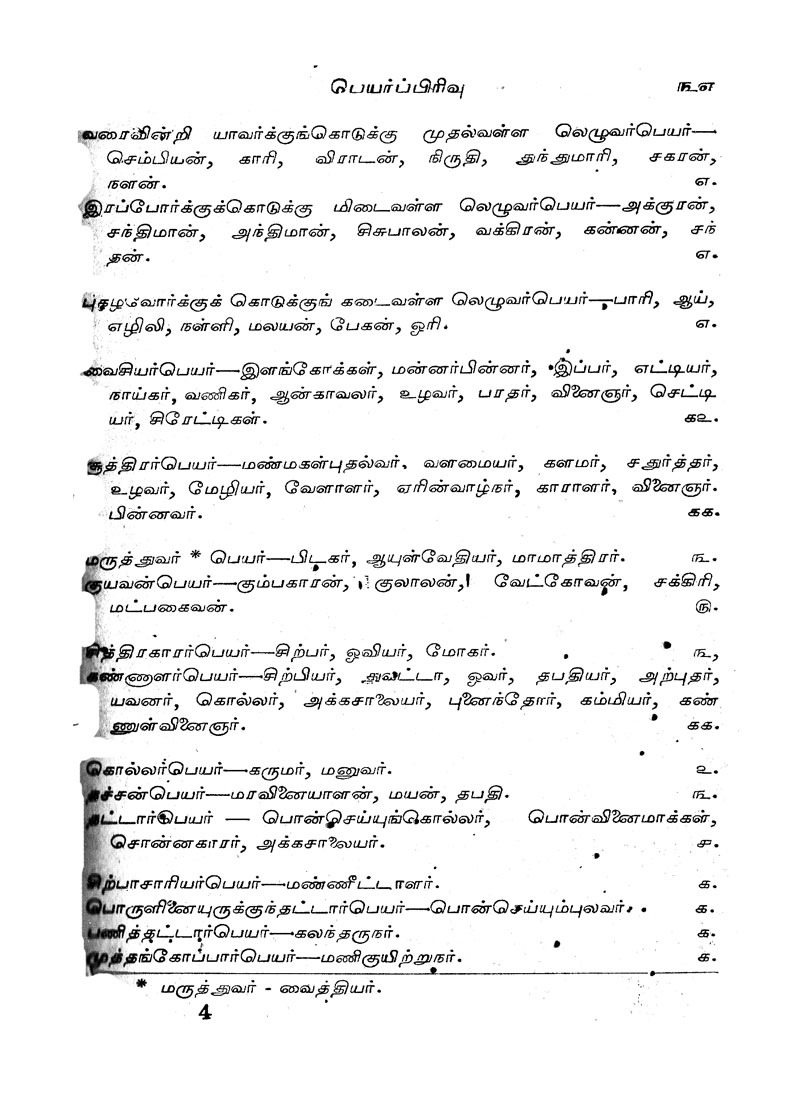 பெயர்ப்பிரிவு ௩௭
வரைவின்றி யாவர்க்குங்கொடுக்கு முதல்வள்ள லெழுவர்பெயர்—
செம்பியன், காரி, விராடன், நிருதி, துந்துமாரி, சகரன்,
நளன். ௭.
இரப்போர்க்குக்கொடுக்கு மிடைவள்ள லெழுவர்பெயர்—அக்குரன்,
சந்திமான், அந்திமான், சிசுபாலன், வக்கிரன், கன்னன், சந்
தன். ௭.
புகழ்வோர்க்குக் கொடுக்குங் கடைவள்ள லெழுவர்பெயர்—பாரி, ஆய்,
எழிலி, நள்ளி, மலயன், பேகன், ஓரி. ௭.
வைசியர்பெயர்—இளங்கோக்கள், மன்னர்பின்னர், இப்பர், எட்டியர்,
நாய்கர், வணிகர், ஆன்காவலர், உழவர், பரதர், வினைஞர், செட்டி
யர், சிரேட்டிகள். ௧௨.
சூத்திரர்பெயர்—மண்மகள்புதல்வர், வளமையர், களமர், சதுர்த்தர்,
உழவர், மேழியர், வேளாளர், ஏரின்வாழ்நர், காராளர், வினைஞர்.
பின்னவர். ௧௧.
மருத்துவர் * பெயர்—பிடகர், ஆயுள்வேதியர், மாமாத்திரர். ௩.
குயவன்பெயர்—கும்பகாரன், குலாலன், வேட்கோவன், சக்கிரி,
மட்பகைவன். ௫.
சித்திரகாரர்பெயர்—சிற்பர், ஓவியர், மோகர். ௩,
கண்ணுளர்பெயர்—சிற்பியர், துவட்டா, ஓவர், தபதியர், அற்புதர்,
யவனர், கொல்லர், அக்கசாலையர், புனைந்தோர், கம்மியர், கண்
ணுள்வினைஞர். ௧௧.
கொல்லர்பெயர்—கருமர், மனுவர். ௨.
தச்சன்பெயர்—மரவினையாளன், மயன், தபதி. ௩.
தட்டார்பெயர் — பொன்செய்யுங்கொல்லர், பொன்வினைமாக்கள்,
சொன்னகாரர், அக்கசாலையர். ௪.
சிற்பாசாரியர்பெயர்—மண்ணீட்டாளர். ௧.
பொருளினையுருக்குந்தட்டார்பெயர்—பொன்செய்யும்புலவர். ௧.
பணித்தட்டார்பெயர்—கலந்தருநர். ௧.
முத்தங்கோப்பார்பெயர்—மணிகுயிற்றுநர். ௧.
* மருத்துவர் - வைத்தியர்.
4